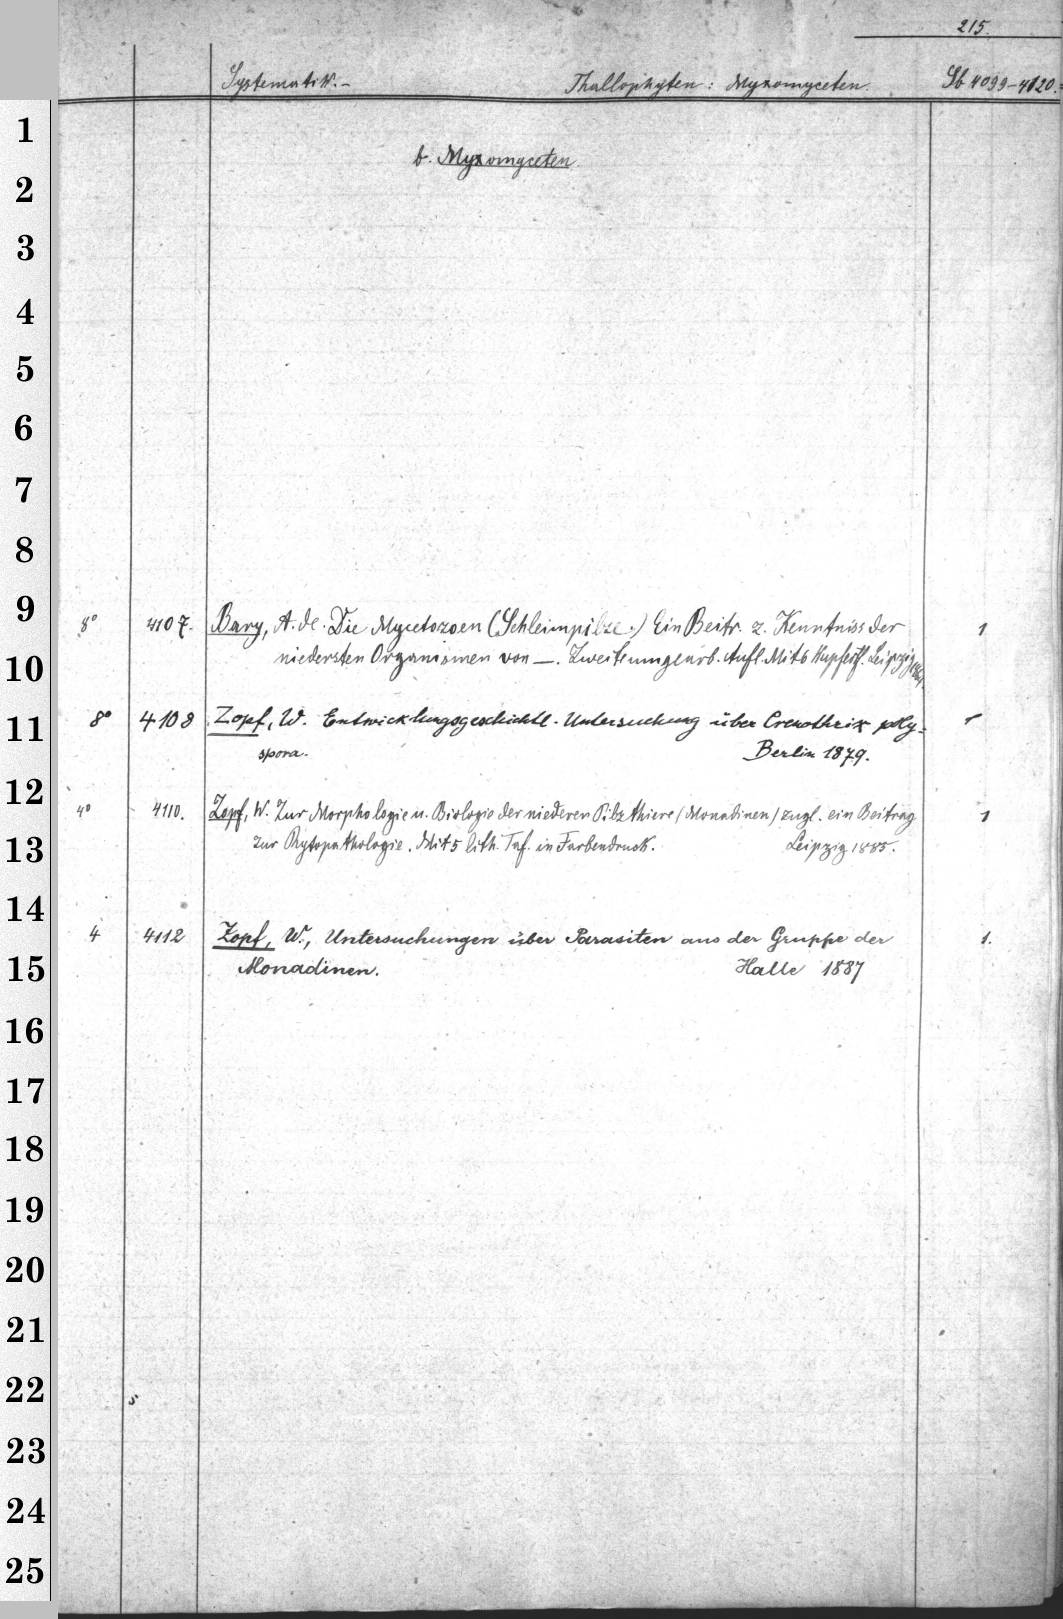 215.
Systematik.- Thallophyten: Myxomyceten. Sb 4099-4120.
1
b. Myxomyceten
2
3
4
5
6
7
8
9
8° 4107. Bary, A. de. Die Mycetozoen (Schleimpilze.) Ein Beitr. z. Kenntniss der 1
niedersten Organismen von —. Zweite umgearb. Aufl. Mit 6 Kupferf. Leipzig 1864.
10
8° 4108 Zopf, W. Entwicklungsgeschichtl. Untersuchung über Crenothrix poly- 1
11
spora. Berlin 1879.
12
4° 4110. Zopf, W. Zur Morphologie u. Biologie der niederen Pilzthiere (Monadinen) zugl. ein Beitrag 1
13
zur Phytopathologie. Mit 5 lith. Taf. in Farbendruck. Leipzig 1885.
14
4 4112 Zopf, W., Untersuchungen über Parasiten aus der Gruppe der 1.
15
Monadinen. Halle 1887
16
17
18
19
20
21
22
23
24
25